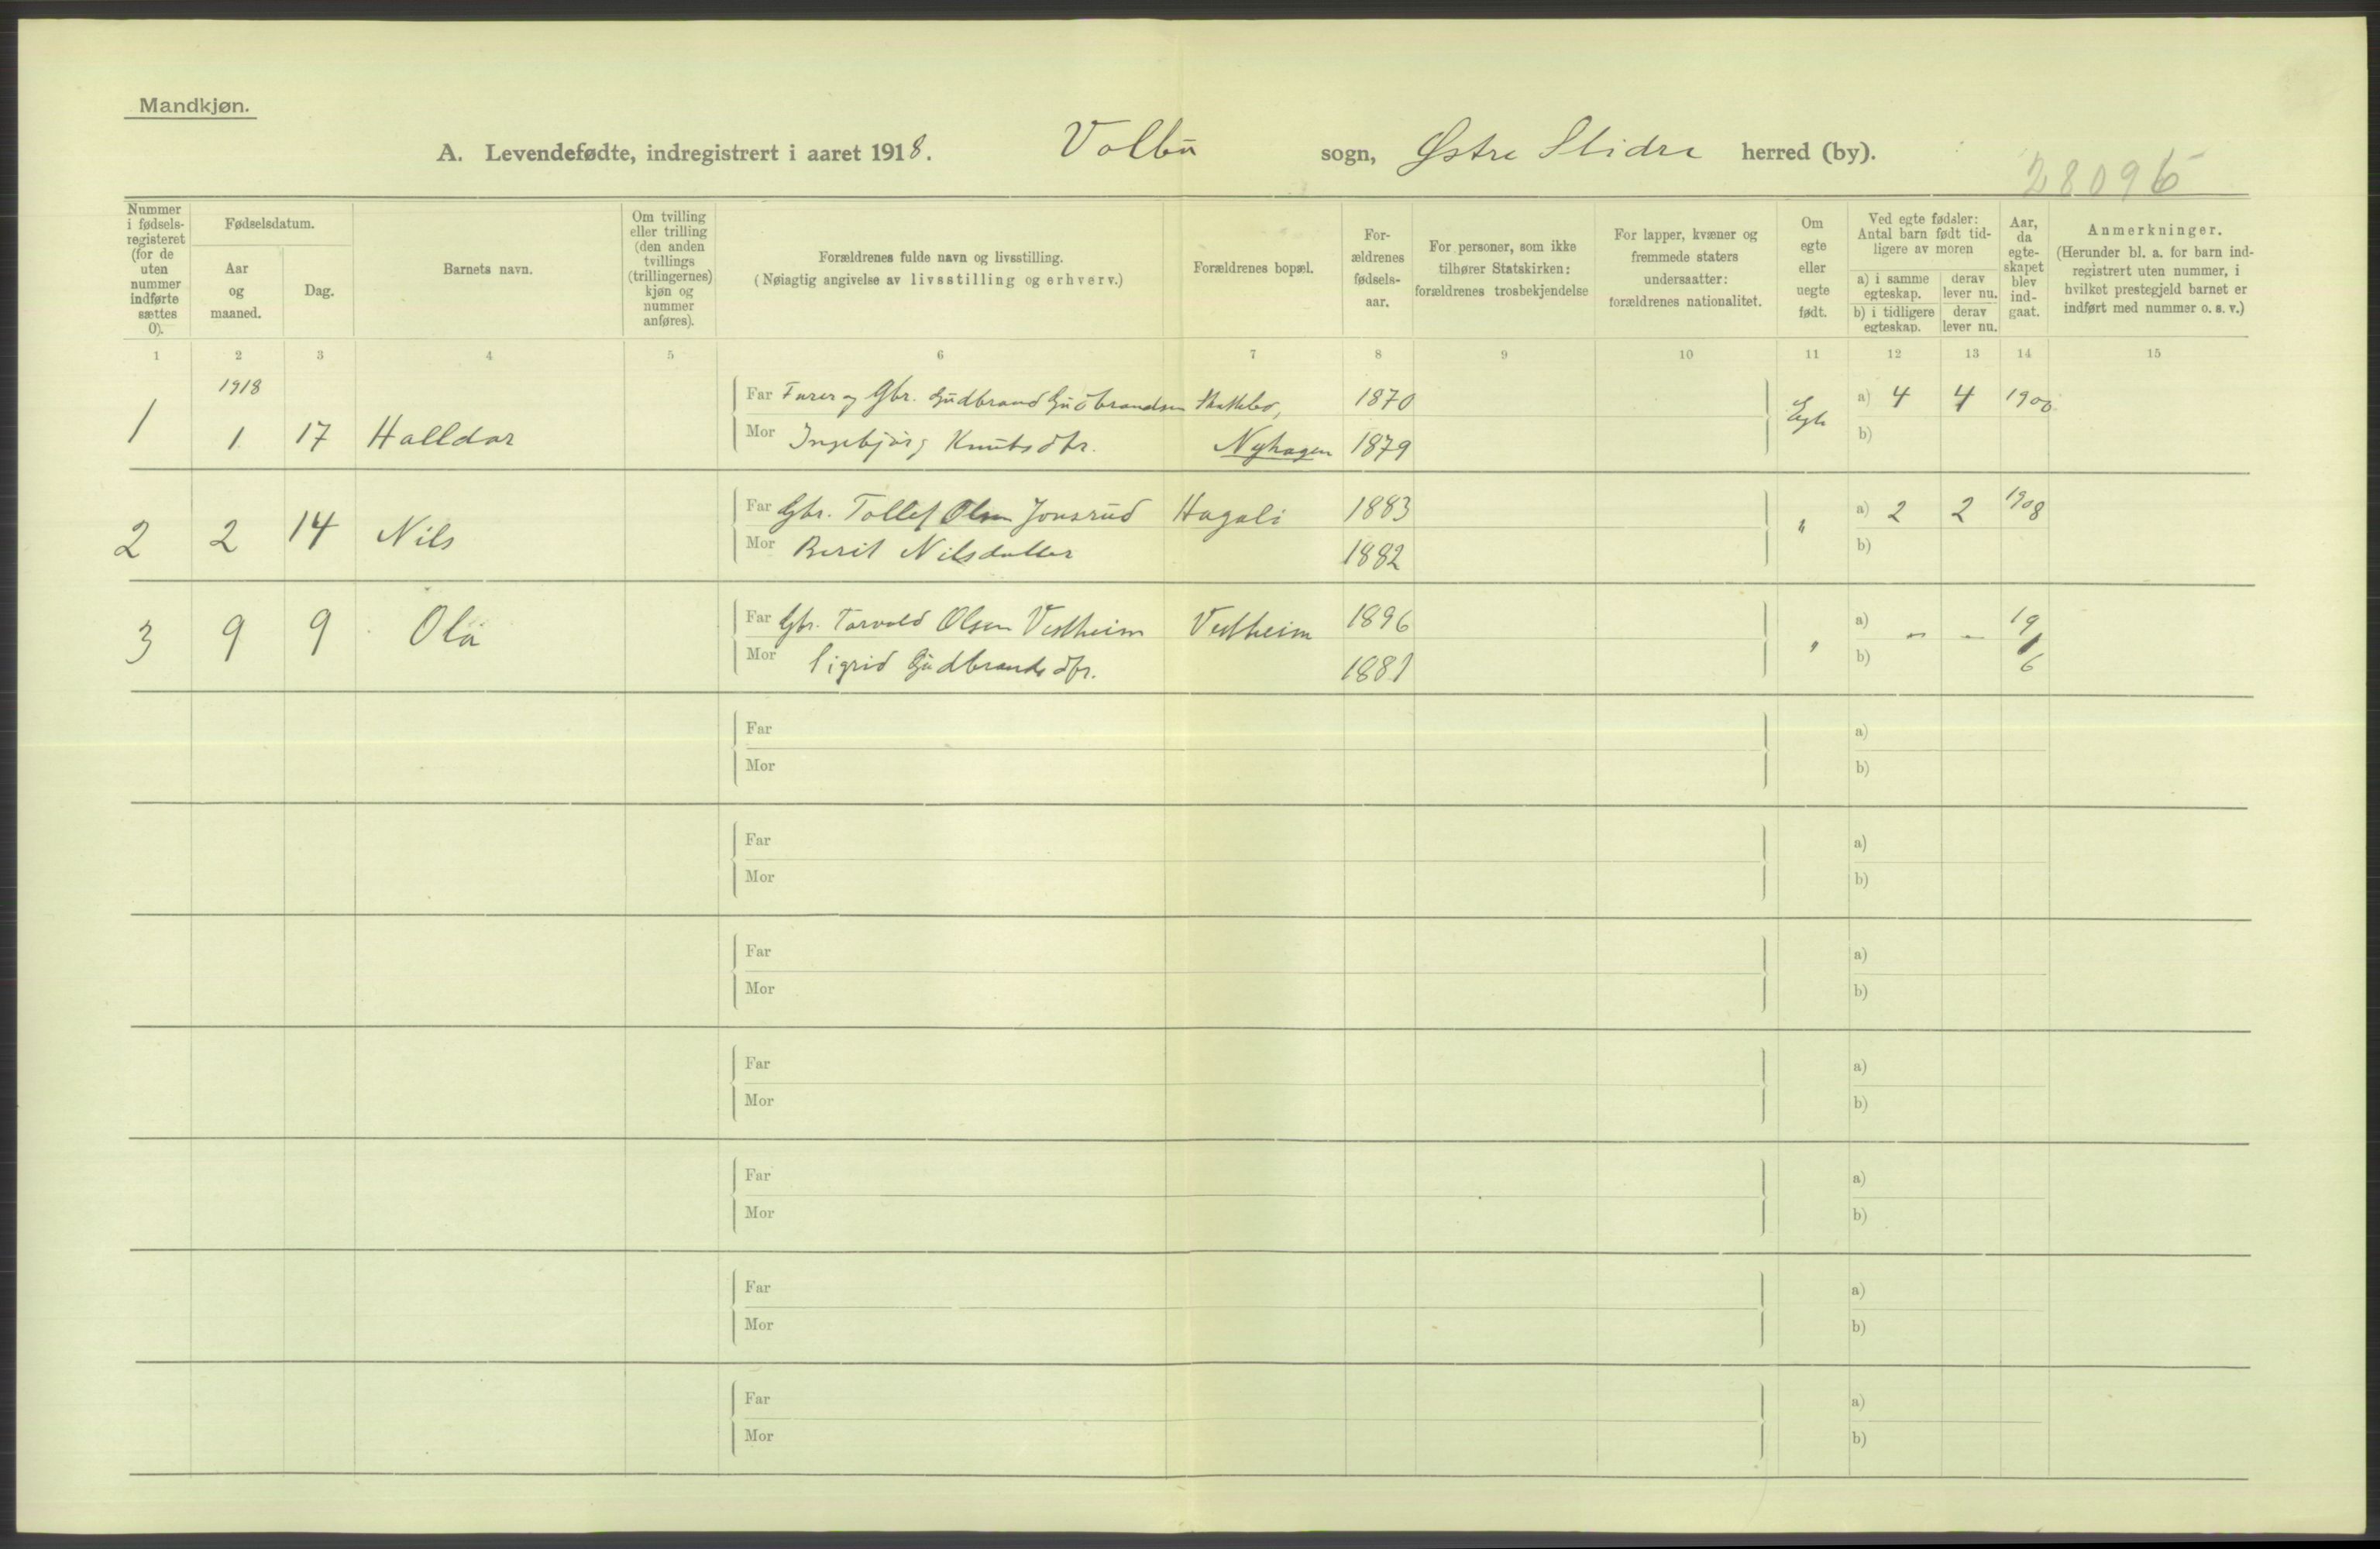 Mandkjøn.
A. Levendefødte, indregistrert i aaret 1918. Volbu sogn, Østre Slidre herred (by).
28096
Nummer i fødsels-registeret (for de uten nummer indførte sættes 0).
Fødselsdatum.
Aar og maaned.
Dag.
Barnets navn.
Om tvilling eller trilling (den anden tvillings (trillingernes) kjøn og nummer anføres).
Forældrenes fulde navn og livsstilling.
(Nøiagtig angivelse av livsstilling og erhverv.)
Forældrenes bopæl.
For-ældrenes fødsels-aar.
For personer, som ikke tilhører Statskirken: forældrenes trosbekjendelse
For lapper, kvæner og fremmede staters undersaatter: forældrenes nationalitet.
Om egte eller uegte født.
Ved egte fødsler: Antal barn født tid-ligere av moren
a) i samme egteskap.
derav lever nu.
b) i tidligere egteskap.
derav lever nu.
Aar, da egte-skapet blev ind-gaat.
Anmerkninger.
(Herunder bl. a. for barn ind-registrert uten nummer, i hvilket prestegjeld barnet er indført med nummer o. s. v.)
1 2 3 4 5 6 7 8 9 10 11 12 13 14 15
1918
Far Furer og Gbr. Gudbrand Gudbrandsen 1870 a) 4 4 1900
1 1 17 Halldor Mor Ingebjørg Knutsdtr. Nyhagen 1879 Egte b)
Far Gbr. Tollef Olsen Jonsrud Hagali 1883 a) 2 2 1908
2 2 14 Nils Mor Berit Nilsdatter 1882 " b)
Far Gbr. Torvald Olsen Vestheim Vestheim 1896 a) " - 19
3 9 9 Ola Mor Sigrid Gudbrandsdtr. 1881 " b)
Far a)
Mor b)
Far a)
Mor b)
Far a)
Mor b)
Far a)
Mor b)
Far a)
Mor b)
Far a)
Mor b)
Far a)
Mor b)